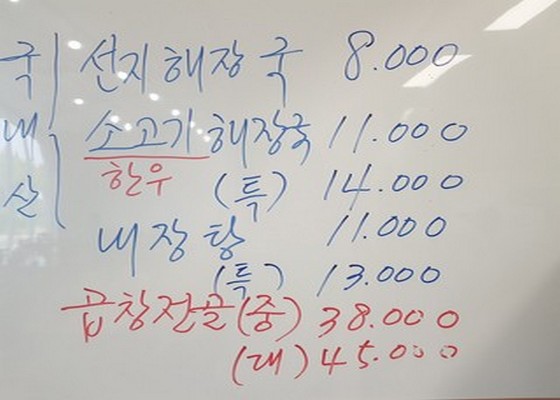 국내산
선지해장국 8.000
소고기해장국 11.000
한우 (특) 14.000
내장탕 11.000
(특) 13.000
곱창전골(중) 38.000
(대) 45.000